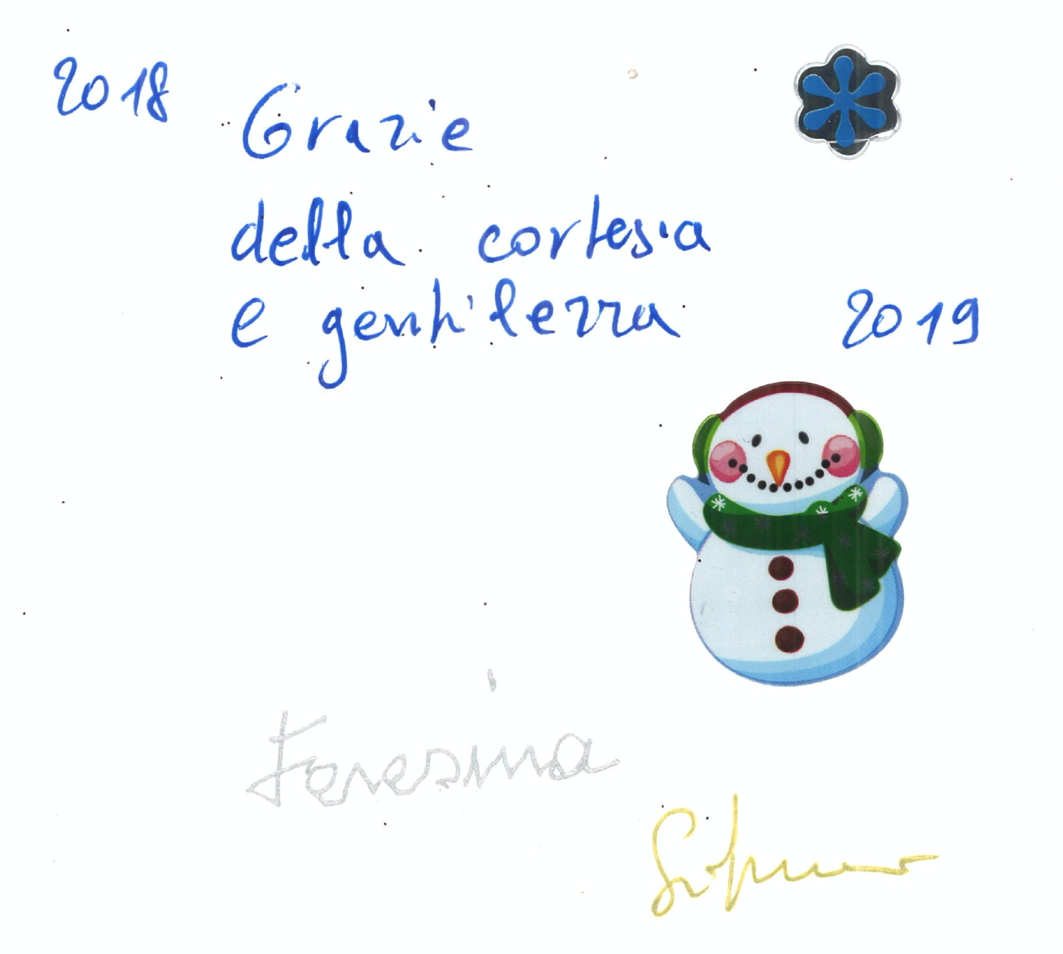 2018
Grazie
della cortesia
e gentilezza
2019
Teresina